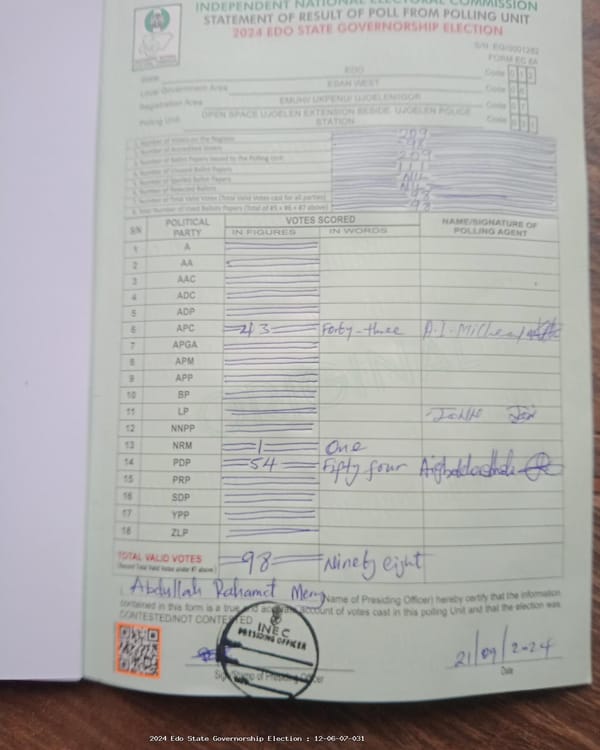 INDEPENDENT NATIONAL ELECTORAL COMMISSION
STATEMENT OF RESULT OF POLL FROM POLLING UNIT
2024 EDO STATE GOVERNORSHIP ELECTION
S/N: EG/0001282
FORM EC 8A
State EDO Code
Local Government Area ESAN WEST Code
Registration Area EMUHI/ UKPENU/ UJOELEN/IGOR Code
Polling Unit OPEN SPACE UJOELEN EXTENSION BESIDE UJOELEN POLICE STATION Code
1. Number of Voters on the Register 209
2. Number of Accredited Voters 98
3. Number of Ballot Papers Issued to the Polling Unit 209
4. Number of Unused Ballot Papers 111
5. Number of Spoiled Ballot Papers Nil
6. Number of Rejected Ballots
7. Number of Total Valid Votes (Total Valid Votes cast for all parties)
8. Total Number of Used Ballot Papers (Total of #5 + #6 + #7 above) 98
S/N POLITICAL PARTY VOTES SCORED NAME/SIGNATURE OF POLLING AGENT
IN FIGURES IN WORDS
1 A
2 AA
3 AAC
4 ADC
5 ADP
6 APC 43 Forty-three A.I. Micheal
7 APGA
8 APM
9 APP
10 BP
11 LP
12 NNPP
13 NRM 1 One
14 PDP 54 Fifty four
15 PRP
16 SDP
17 YPP
18 ZLP
TOTAL VALID VOTES 98 Ninety eight
I, Abdullah Rahamat Mercy (Name of Presiding Officer) hereby certify that the information
contained in this form is a true and accurate account of votes cast in this polling Unit and that the election was
CONTESTED/NOT CONTESTED
INEC
PRESIDING OFFICER
21/09/2024
Sign/Stamp of Presiding Officer
Date
2024 Edo State Governorship Election : 12-06-07-031